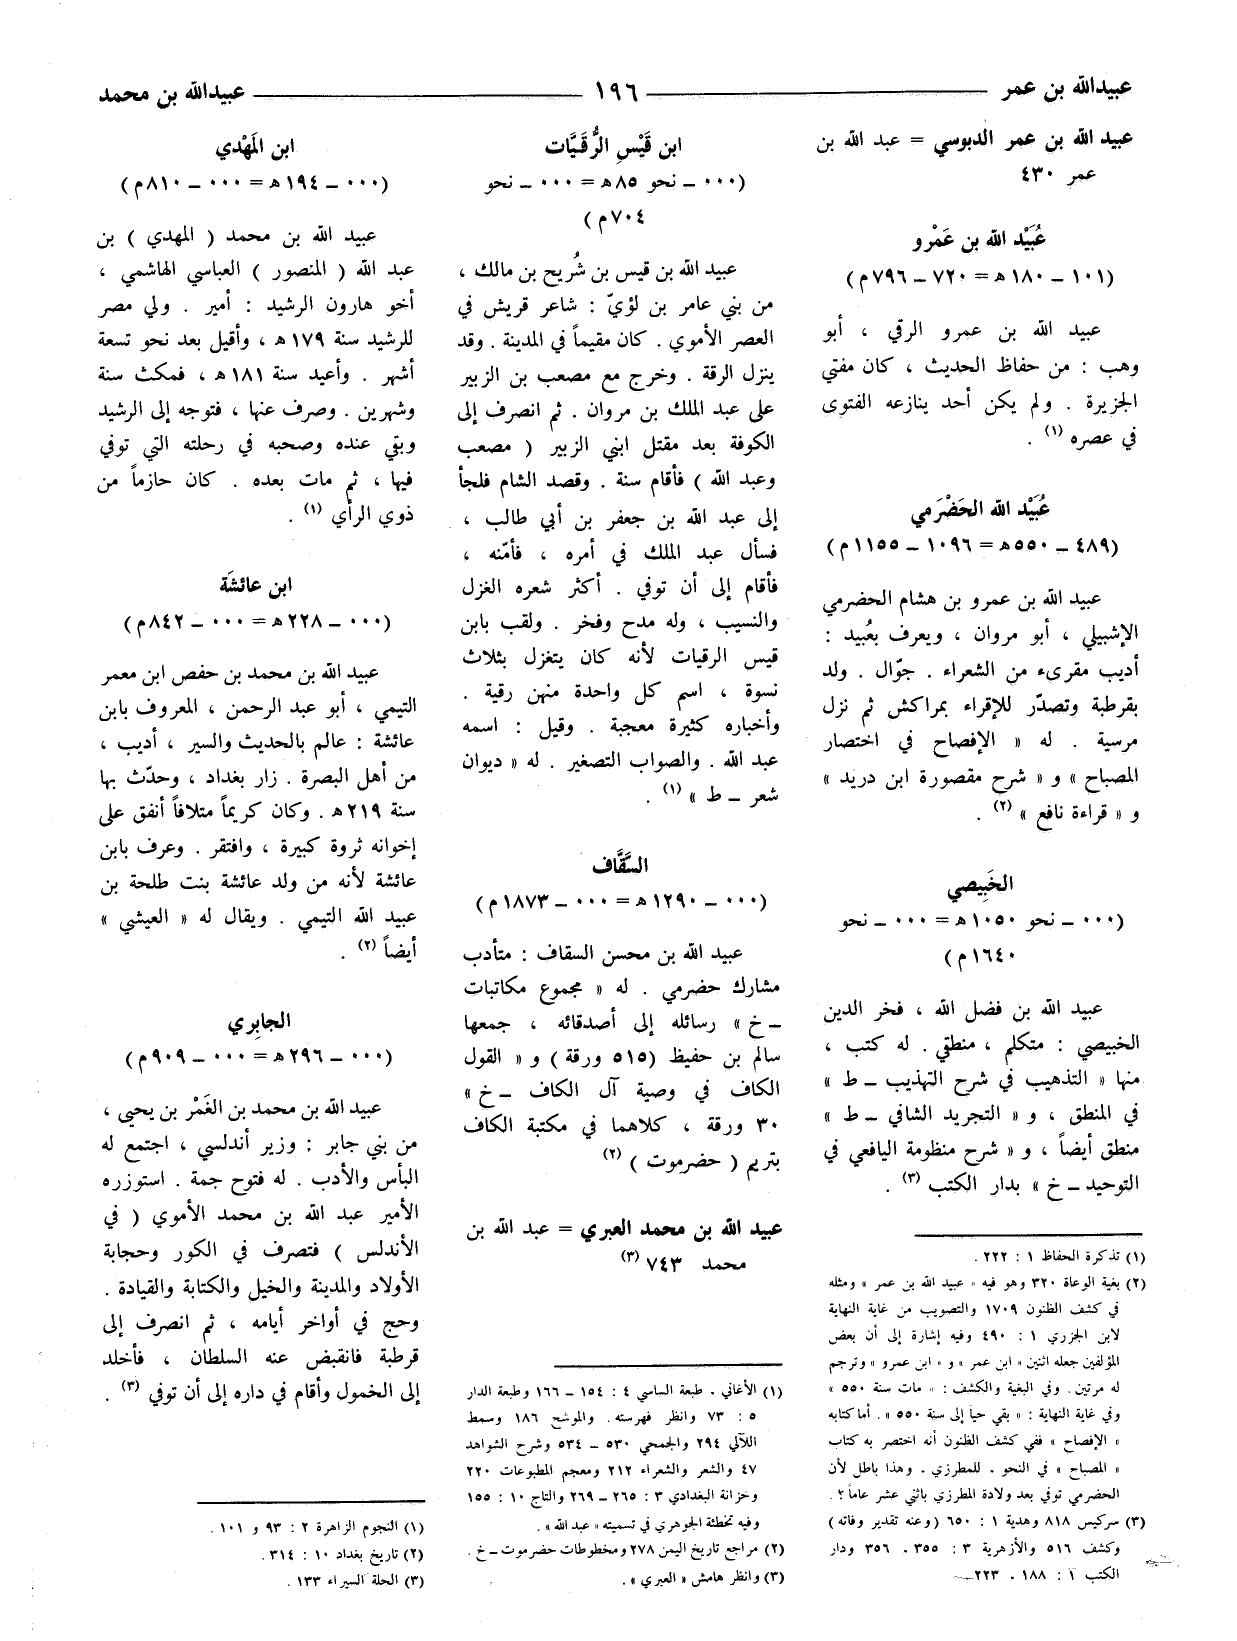 عبيدالله بن عمر ١٩٦ عبيدالله بن محمد
عبيد الله بن عمر الدبوسي = عبد الله بن
عمر ٤٣٠
عُبَيْد الله بن عَمْرو
(١٠١ ــ ١٨٠ هـ = ٧٢٠ ــ ٧٩٦ م)
عبيد الله بن عمرو الرقي ، أبو
وهب : من حفاظ الحديث ، كان مفتي
الجزيرة . ولم يكن أحد ينازعه الفتوى
في عصره (١) .
عُبَيْد الله الحَضْرَمي
(٤٨٩ ــ ٥٥٠ هـ = ١٠٩٦ ــ ١١٥٥ م)
عبيد الله بن عمرو بن هشام الحضرمي
الإشبيلي ، أبو مروان ، ويعرف بعُبيد :
أديب مقرىء من الشعراء . جوّال . ولد
بقرطبة وتصدّر للإقراء بمراكش ثم نزل
مرسية . له « الإفصاح في اختصار
المصباح » و « شرح مقصورة ابن دريد »
و « قراءة نافع » (٢) .
الخَبِيصي
(٠٠٠ ــ نحو ١٠٥٠ هـ = ٠٠٠ ــ نحو
١٦٤٠ م)
عبيد الله بن فضل الله ، فخر الدين
الخبيصي : متكلم ، منطقي . له كتب ،
منها « التذهيب في شرح التهذيب ــ ط »
في المنطق ، و « التجريد الشافي ــ ط »
منطق أيضاً ، و « شرح منظومة اليافعي في
التوحيد ــ خ » بدار الكتب (٣) .
(١) تذكرة الحفاظ ١ : ٢٢٢ .
(٢) بغية الوعاة ٣٢٠ وهو فيه « عبيد الله بن عمر » ومثله
في كشف الظنون ١٧٠٩ والتصويب من غاية النهاية
لابن الجزري ١ : ٤٩٠ وفيه إشارة إلى أن بعض
المؤلفين جعله اثنين « ابن عمر » و « ابن عمرو » وترجم
له مرتين . وفي البغية والكشف : « مات سنة ٥٥٠ »
وفي غاية النهاية : « بقي حياً إلى سنة ٥٥٠ » . أما كتابه
« الإفصاح » ففي كشف الظنون أنه اختصر به كتاب
« المصباح » في النحو . للمطرزي . وهذا باطل لأن
الحضرمي توفي بعد ولادة المطرزي باثني عشر عاماً ؟ .
(٣) سركيس ٨١٨ وهدية ١ : ٦٥٠ (وعنه تقدير وفاته)
وكشف ٥١٦ والأزهرية ٣ : ٣٥٥ . ٣٥٦ ودار
الكتب ١ : ١٨٨ . ٢٢٣ــ
ابن قَيْسِ الرُّقَيَّات
(٠٠٠ ــ نحو ٨٥ هـ = ٠٠٠ ــ نحو
٧٠٤ م)
عبيد الله بن قيس بن شُريح بن مالك ،
من بني عامر بن لؤيّ : شاعر قريش في
العصر الأموي . كان مقيماً في المدينة . وقد
ينزل الرقة . وخرج مع مصعب بن الزبير
على عبد الملك بن مروان . ثم انصرف إلى
الكوفة بعد مقتل ابني الزبير ( مصعب
وعبد الله ) فأقام سنة . وقصد الشام فلجأ
إلى عبد الله بن جعفر بن أبي طالب ،
فسأل عبد الملك في أمره ، فأمّنه ،
فأقام إلى أن توفي . أكثر شعره الغزل
والنسيب ، وله مدح وفخر . ولقب بابن
قيس الرقيات لأنه كان يتغزل بثلاث
نسوة ، اسم كل واحدة منهن رقية .
وأخباره كثيرة معجبة . وقيل : اسمه
عبد الله . والصواب التصغير . له « ديوان
شعر ــ ط » (١) .
السَّقَّاف
(٠٠٠ ــ ١٢٩٠ هـ = ٠٠٠ ــ ١٨٧٣ م)
عبيد الله بن محسن السقاف : متأدب
مشارك حضرمي . له « مجموع مكاتبات
ــ خ » رسائله إلى أصدقائه ، جمعها
سالم بن حفيظ (٥١٥ ورقة) و « القول
الكاف في وصية آل الكاف ــ خ »
٣٠ ورقة ، كلاهما في مكتبة الكاف
بتريم ( حضرموت ) (٢)
عبيد الله بن محمد العبري = عبد الله بن
محمد ٧٤٣ (٣)
(١) الأغاني . طبعة الساسي ٤ : ١٥٤ ــ ١٦٦ وطبعة الدار
٥ : ٧٣ وانظر فهرسته . والموشح ١٨٦ وسمط
اللآلي ٢٩٤ والجمحي ٥٣٠ ــ ٥٣٤ وشرح الشواهد
٤٧ والشعر والشعراء ٢١٢ ومعجم المطبوعات ٢٢٠
وخزانة البغدادي ٣ : ٢٦٥ ــ ٢٦٩ والتاج ١٠ : ١٥٥
وفيه تخطئة الجوهري في تسميته « عبد الله » .
(٢) مراجع تاريخ اليمن ٢٧٨ ومخطوطات حضرموت ــ خ .
(٣) وانظر هامش « العبري » .
ابن المَهْدي
(٠٠٠ ــ ١٩٤ هـ = ٠٠٠ ــ ٨١٠ م)
عبيد الله بن محمد ( المهدي ) بن
عبد الله ( المنصور ) العباسي الهاشمي ،
أخو هارون الرشيد : أمير . ولي مصر
للرشيد سنة ١٧٩ هـ ، وأقيل بعد نحو تسعة
أشهر . وأعيد سنة ١٨١ هـ ، فمكث سنة
وشهرين . وصرف عنها ، فتوجه إلى الرشيد
وبقي عنده وصحبه في رحلته التي توفي
فيها ، ثم مات بعده . كان حازماً من
ذوي الرأي (١) .
ابن عائشَة
(٠٠٠ ــ ٢٢٨ هـ = ٠٠٠ ــ ٨٤٢ م)
عبيد الله بن محمد بن حفص ابن معمر
التيمي ، أبو عبد الرحمن ، المعروف بابن
عائشة : عالم بالحديث والسير ، أديب ،
من أهل البصرة . زار بغداد ، وحدّث بها
سنة ٢١٩ هـ . وكان كريماً متلافاً أنفق على
إخوانه ثروة كبيرة ، وافتقر . وعرف بابن
عائشة لأنه من ولد عائشة بنت طلحة بن
عبيد الله التيمي . ويقال له « العيشي »
أيضاً (٢) .
الجابِري
(٠٠٠ ــ ٢٩٦ هـ = ٠٠٠ ــ ٩٠٩ م)
عبيد الله بن محمد بن الغَمْر بن يحيى ،
من بني جابر : وزير أندلسي ، اجتمع له
البأس والأدب . له فتوح جمة . استوزره
الأمير عبد الله بن محمد الأموي ( في
الأندلس ) فتصرف في الكور وحجابة
الأولاد والمدينة والخيل والكتابة والقيادة .
وحج في أواخر أيامه ، ثم انصرف إلى
قرطبة فانقبض عنه السلطان ، فأخلد
إلى الخمول وأقام في داره إلى أن توفي (٣) .
(١) النجوم الزاهرة ٢ : ٩٣ و ١٠١ .
(٢) تاريخ بغداد ١٠ : ٣١٤ .
(٣) الحلة السيراء ١٣٣ .